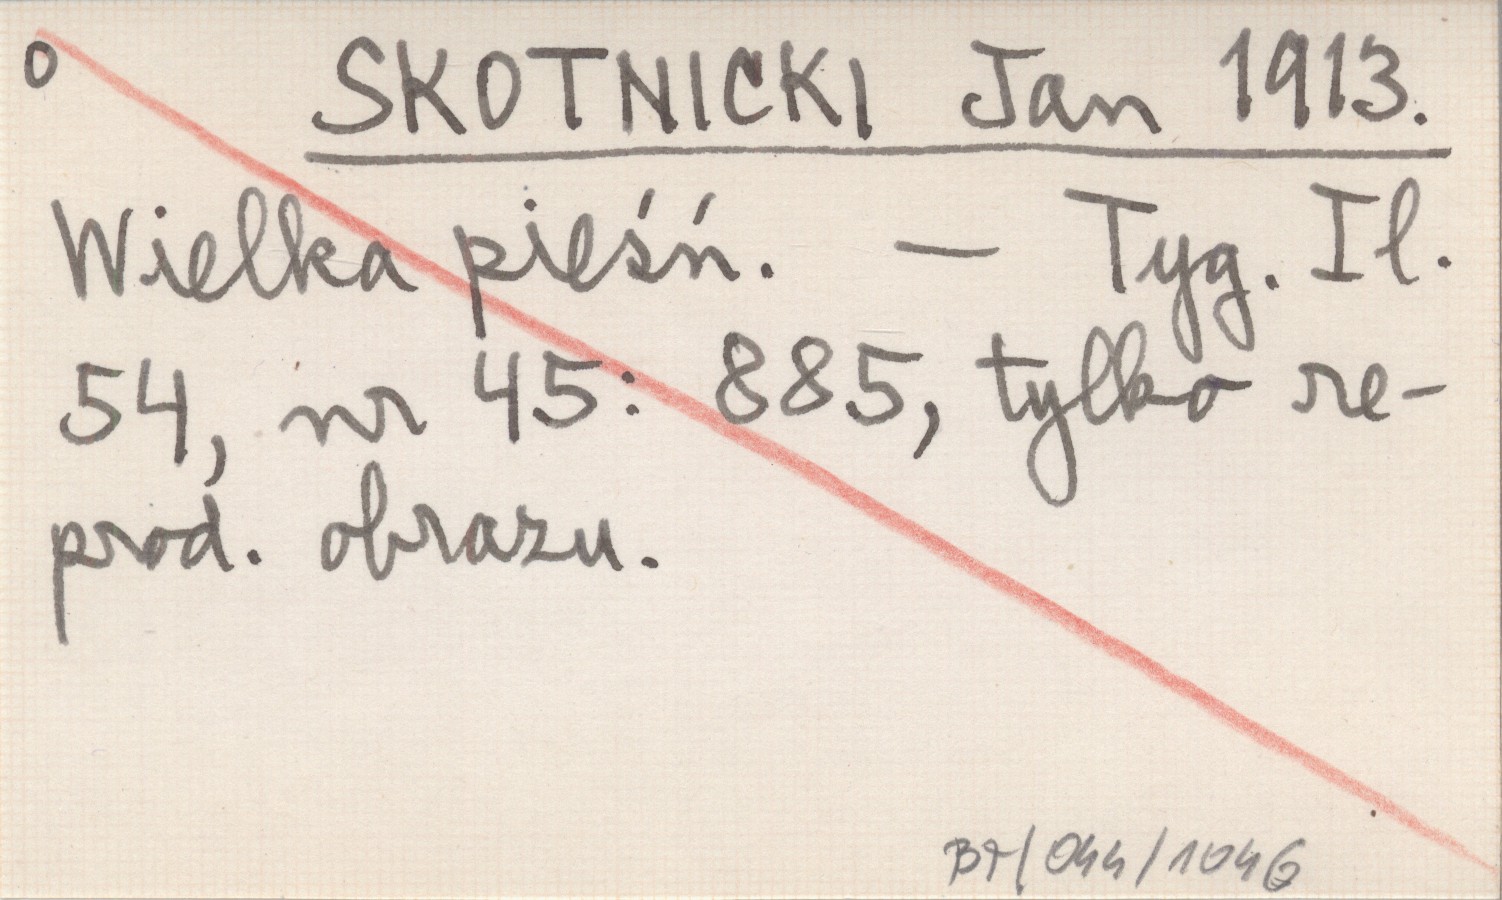 o SKOTNICKI Jan 1913.
Wielka pieśń. — Tyg. Il.
54, nr 45: 885, tylko re-
prod. obrazu.
BT/044/1046